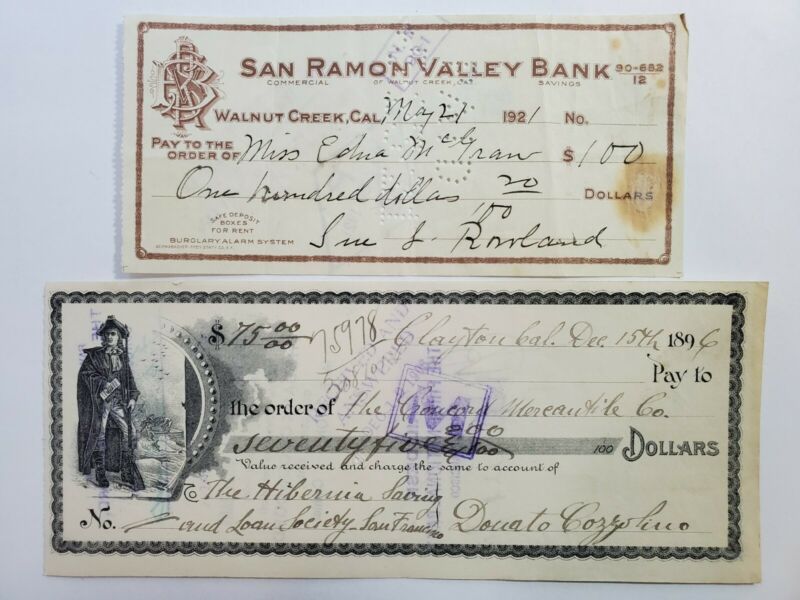 SAN RAMON VALLEY BANK 90-682
12
COMMERCIAL OF WALNUT CREEK, CAL. SAVINGS
WALNUT CREEK, CAL. May 21 1921 No.
PAY TO THE
ORDER OF Miss Edna McGraw $100
One hundred dollars DOLLARS
100
SAFE DEPOSIT
BOXES
FOR RENT
BURGLARY ALARM SYSTEM
Sue L. Rowland
$75 00/00 75978 Clayton Cal. Dec. 15th 1896
Pay to
the order of The Concord Mercantile Co.
Seventy five 100 DOLLARS
Value received and charge the same to account of
To The Hibernia Saving
No. and Loan Society San Francisco Donato Cozzolino